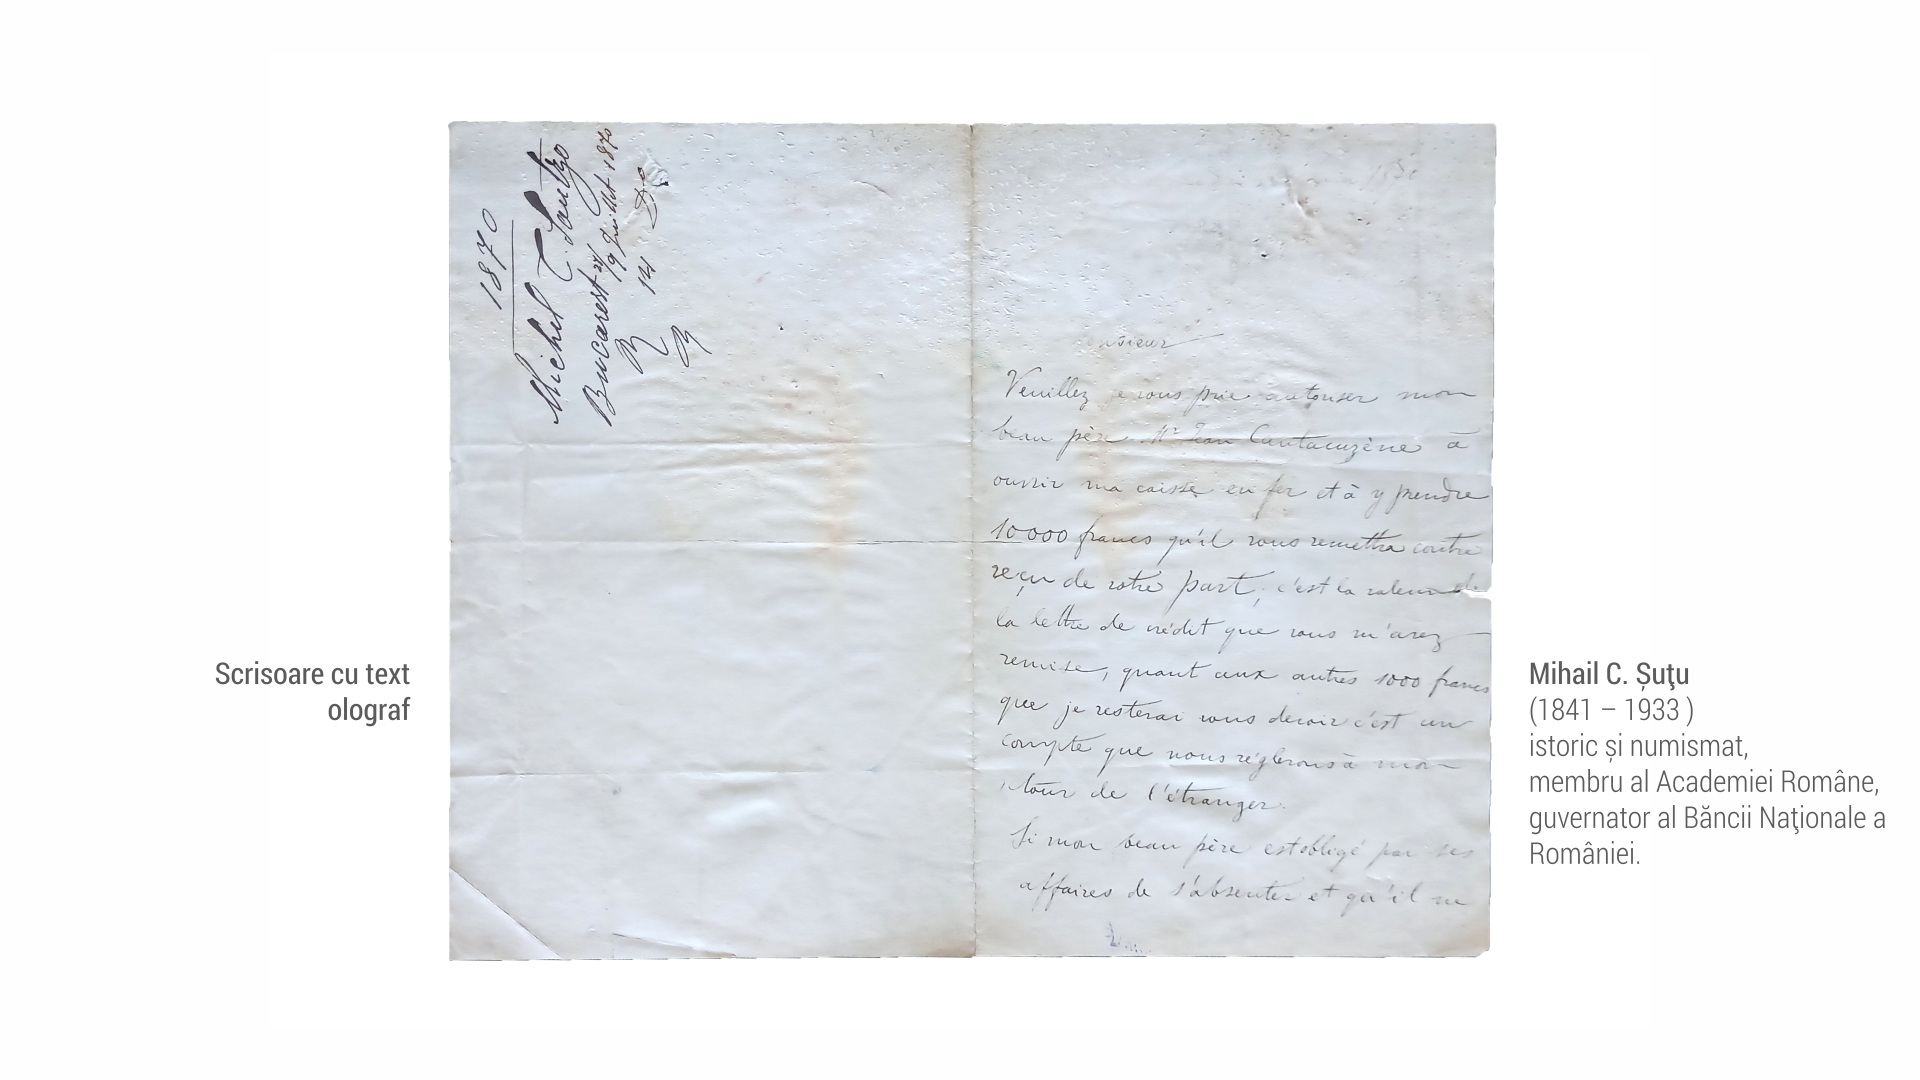 Scrisoare cu text
olograf
1870
Michel C. Soutzo
Bucarest 27/9 Juillet 1870
R 14
R
Veuillez je vous prie autoriser mon
beau père Mr Jean Cantacuzène à
ouvrir ma caisse en fer et à y prendre
10000 francs qu'il vous remettra contre
reçu de votre part; c'est la valeur de
la lettre de crédit que vous m'avez
remise, quant aux autres 1000 francs
que je resterai vous devoir c'est un
compte que nous réglerons à mon
tour de l'étranger.
Si mon beau père est obligé par ses
affaires de s'absenter et qu'il ne
Mihail C. Şuţu
(1841 – 1933 )
istoric și numismat,
membru al Academiei Române,
guvernator al Băncii Naţionale a
României.